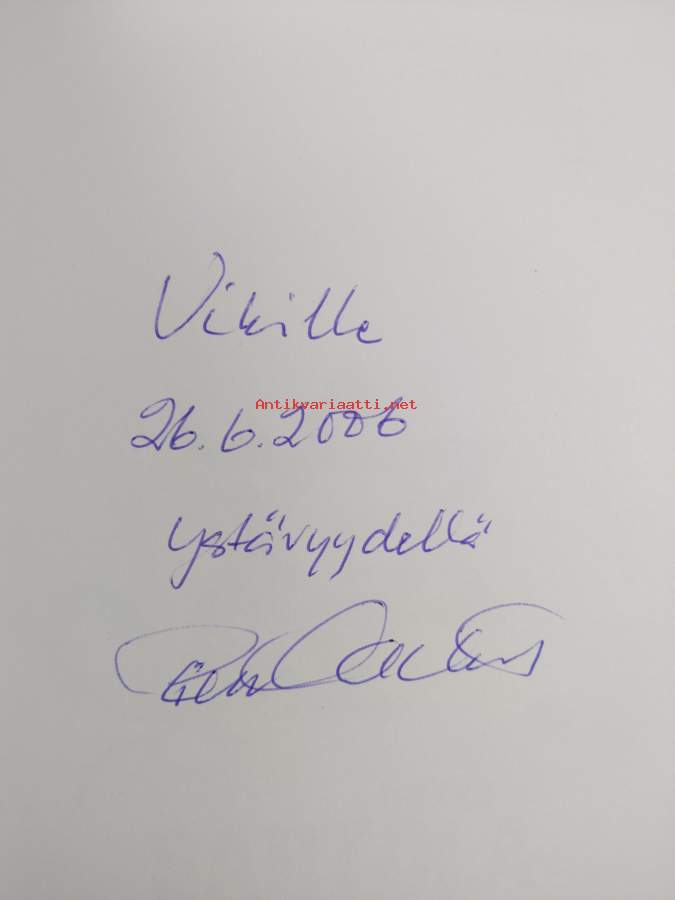 Vikille
Antikvariaatti.net
26.6.2006
Ystävyydellä